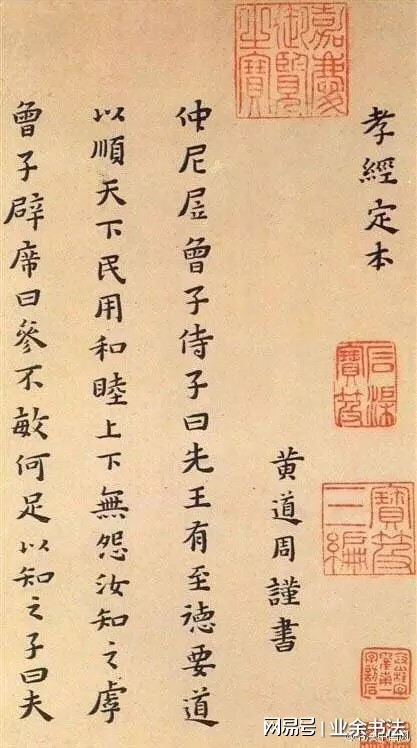 孝經定本
黄道周謹書
仲尼凥曾子侍子曰先王有至德要道
以順天下民用和睦上下無怨汝知之虖
曾子辟席曰參不敏何足以知之子曰夫
嘉慶御覽之寶
石渠寶笈
寶笈三編
网易号 | 业余书法